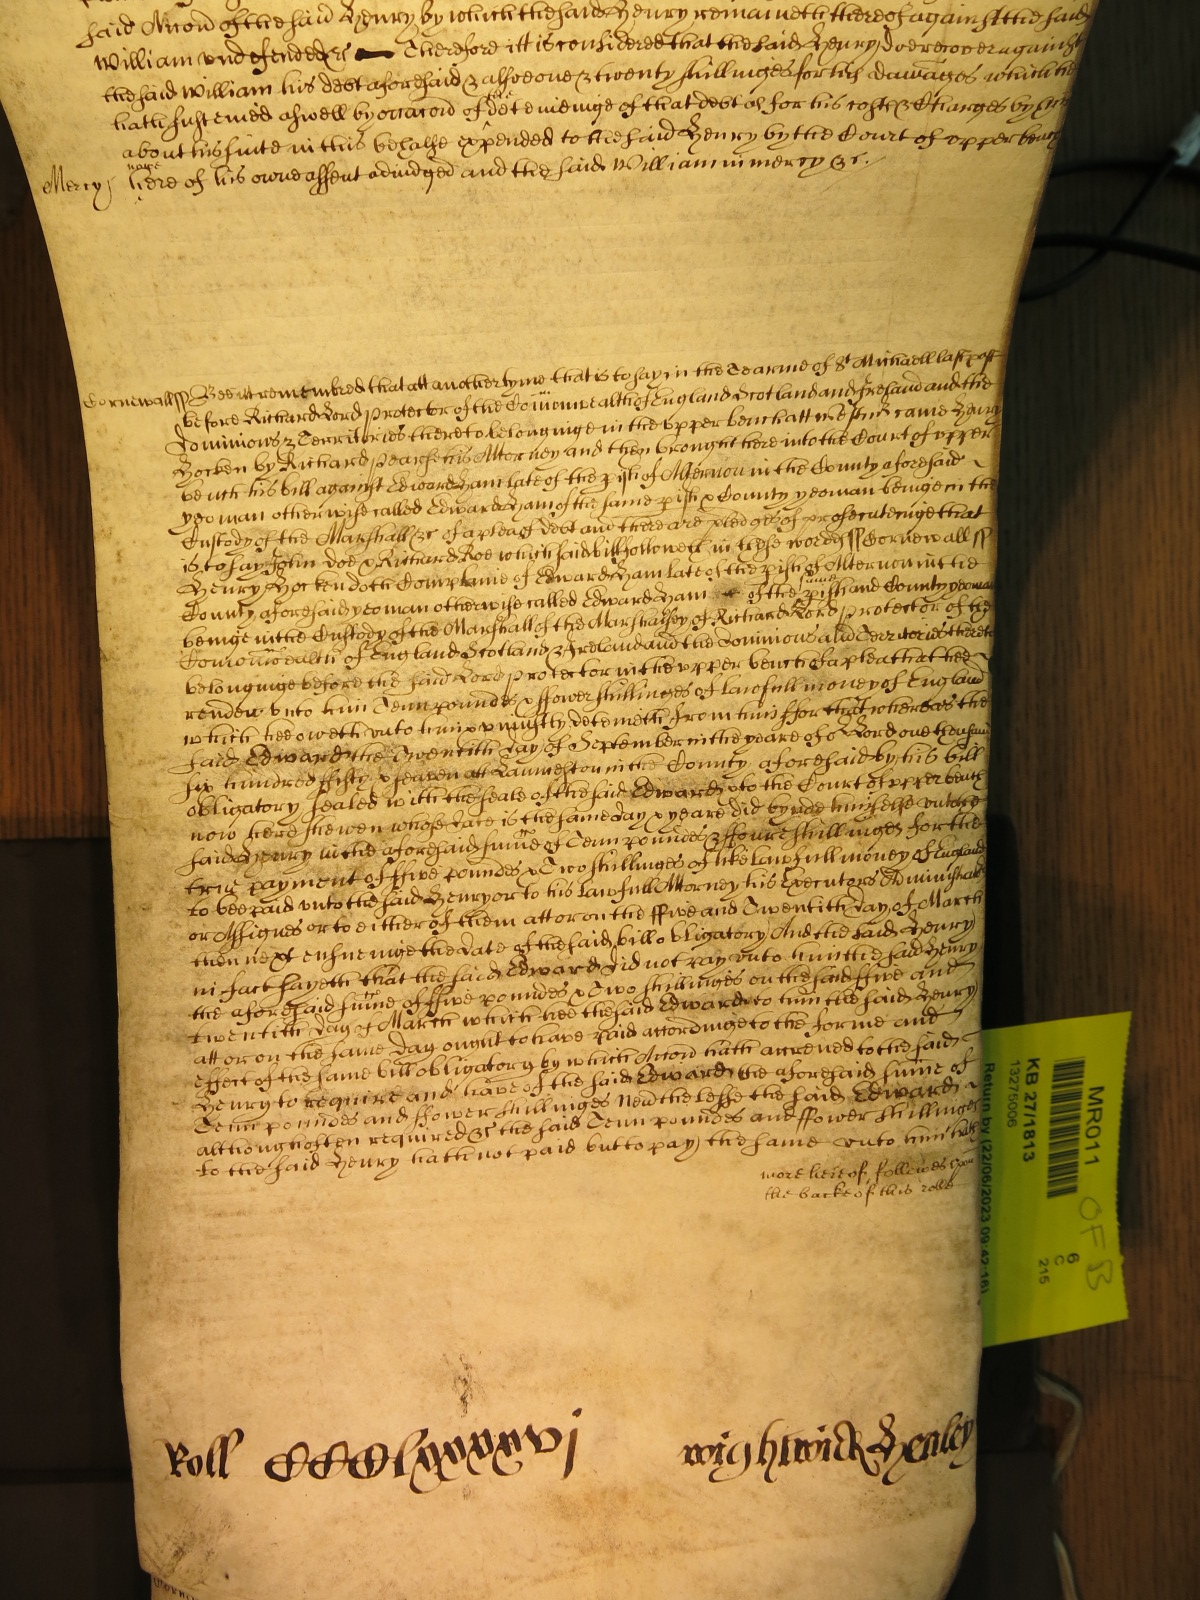 said Accon of the said Henry by which the said Henry remaineth thereof against the said
William undefended &c Therefore itt is considered that the said Henry doe recover against
the said William his debt aforesaid & alsoe one & twenty shillinges for his damages which he
hath susteined aswell by occacon of deteineinge of that debt as for his costs & Charges by him
about his suite in this behalfe expended to the said Henry by the Court of upper bench
Mercy here of his owne assent adiudged and the said William in mercy &c.
Cornewall ss Bee itt remembred that att another tyme that is to say in the Tearme of St Michaell last past
before Richard Lord Protector of the Comonwealth of England Scotland and Ireland and the
dominions & Territories thereto belonginge in the upper bench att Westmr came Henry
Hocken by Richard Pearse his Attorney and then brought here into the Court of upper
bench his bill against Edward Ham late of the pish of Alternon in the County aforesaid
yeoman otherwise called Edward Ham of the same pish & County yeoman beinge in the
Custody of the Marshall &c of a plea of debt and there are pledges of prosecuteinge that
is to say John Doe & Richard Roe which said bill followeth in these words ss Cornewall ss
Henry Hocken doth Complaine of Edward Ham late of the pish of Alternon in the
County aforesaid yeoman otherwise called Edward Ham of the same pish and County yeoman
beinge in the Custody of the Marshall of the Marshalsey of Richard Lord Protector of the
Comonwealth of England Scotland & Ireland and the Dominions and Territories thereto
belonginge before the said Lord Protector in the upper bench of a plea that hee
render unto him Tenn poundes & ffower shillinges of lawfull money of England
which hee oweth unto him & uniustly deteineth from him ffor that whereas the
said Edward the Twentith day of September in the yeare of or Lord one thousand
six hundred ffifty & seaven att Launceston in the County aforesaid by his bill
obligatory sealed with the seale of the said Edward & to the Court of upper bench
now here shewen whose date is the same day & yeare did bynde himselfe unto the
said Henry in the aforesaid sume of Tenn poundes & ffoure shillinges for the
true payment of ffive poundes & Two shillinges of like lawfull money of England
to bee paid unto the said Henry or to his lawfull Attorney his Executors Administrators
or Assignes or to either of them att or on the ffive and Twentith day of March
then next ensueinge the date of the said bill obligatory And the said Henry
in fact sayeth that the said Edward did not pay unto him the said Henry
the aforesaid sume of ffive poundes & Two shillinges on the said ffive and
twentith day of March which hee the said Edward to him the said Henry
att or on the same day ought to have paid accordinge to the forme and
effect of the same bill obligatory by which Accon hath accrued to the said
Henry to require and have of the said Edward the aforesaid sume of
Tenn poundes and ffower shillinges Neverthelesse the said Edward
although often required &c the said Tenn poundes and ffower shillinges
to the said Henry hath not paid but to pay the same unto him hath
more hereof followes upon
the backe of this rolle
Roll CCCClxxxxvj
Wightwick Henley
MR011
KB 27/1813
13275006
Return by (22/06/2023 09:42:16)
6
C
215
OF B